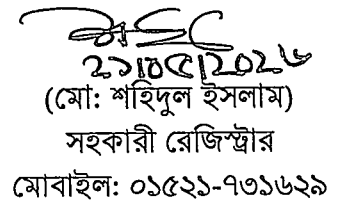 ২১/০৫/২০২৬
(মো: শহিদুল ইসলাম)
সহকারী রেজিস্ট্রার
মোবাইল: ০১৫২১-৭৩১৬২৯